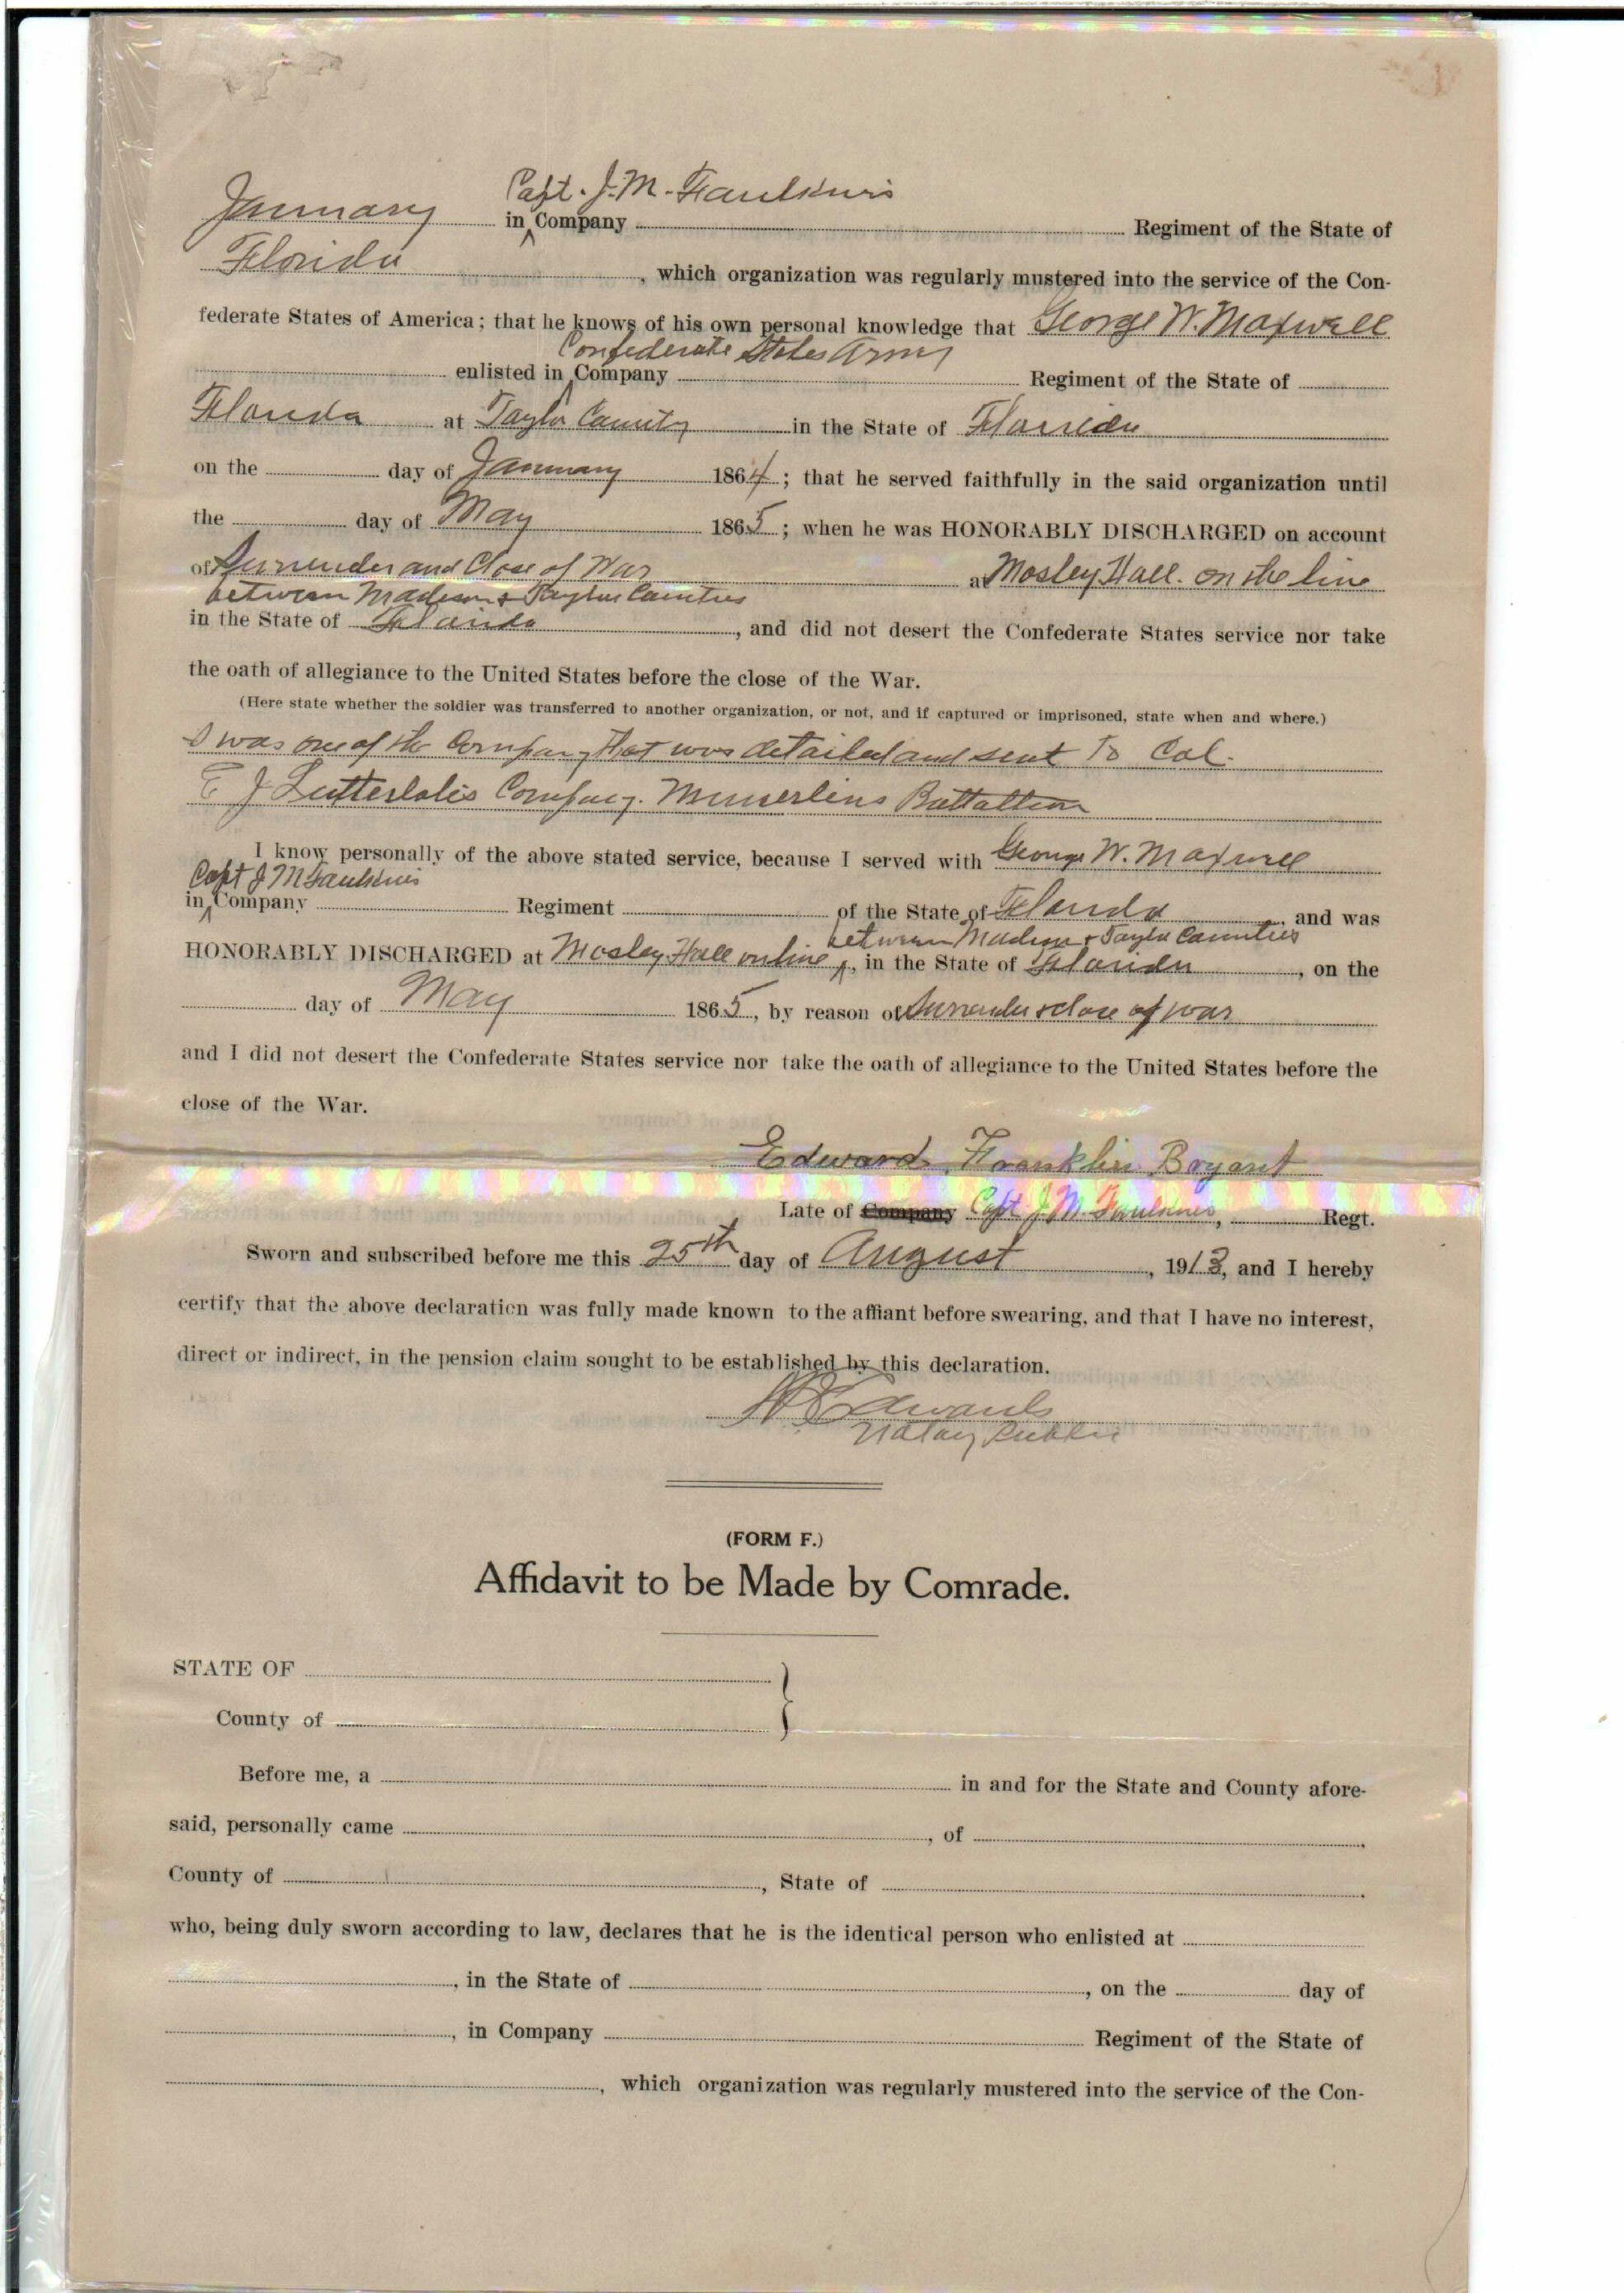 Capt. J. M. Faulkners
January in Company Regiment of the State of
Florida , which organization was regularly mustered into the service of the Con-
federate States of America; that he knows of his own personal knowledge that George W. Maxwell
Confederate States Army
enlisted in Company Regiment of the State of
Florida at Taylor County in the State of Florida
on the day of January 1864; that he served faithfully in the said organization until
the day of May 1865; when he was HONORABLY DISCHARGED on account
of Surrender and Close of War at Mosley Hall. on the line
between Madison & Taylor Counties
in the State of Florida , and did not desert the Confederate States service nor take
the oath of allegiance to the United States before the close of the War.
(Here state whether the soldier was transferred to another organization, or not, and if captured or imprisoned, state when and where.)
I was one of the Company that was detailed and sent To Col.
E J Lutterlohs Company. Munerlins Battallion
I know personally of the above stated service, because I served with George W. Maxwell
Capt J M Faulkners
in Company Regiment of the State of Florida , and was
between Madison & Taylor Counties
HONORABLY DISCHARGED at Mosley Hall on line , in the State of Florida , on the
day of May 1865, by reason of Surrender & close of war
and I did not desert the Confederate States service nor take the oath of allegiance to the United States before the
close of the War.
Edward Franklin Bryant
Late of Company Capt J. M. Faulkners, Regt.
Sworn and subscribed before me this 25th day of August , 1913, and I hereby
certify that the above declaration was fully made known to the affiant before swearing, and that I have no interest,
direct or indirect, in the pension claim sought to be established by this declaration.
Edwards
Notary Public
(FORM F.)
Affidavit to be Made by Comrade.
STATE OF
County of
Before me, a in and for the State and County afore-
said, personally came , of
County of , State of
who, being duly sworn according to law, declares that he is the identical person who enlisted at
, in the State of , on the day of
, in Company Regiment of the State of
, which organization was regularly mustered into the service of the Con-